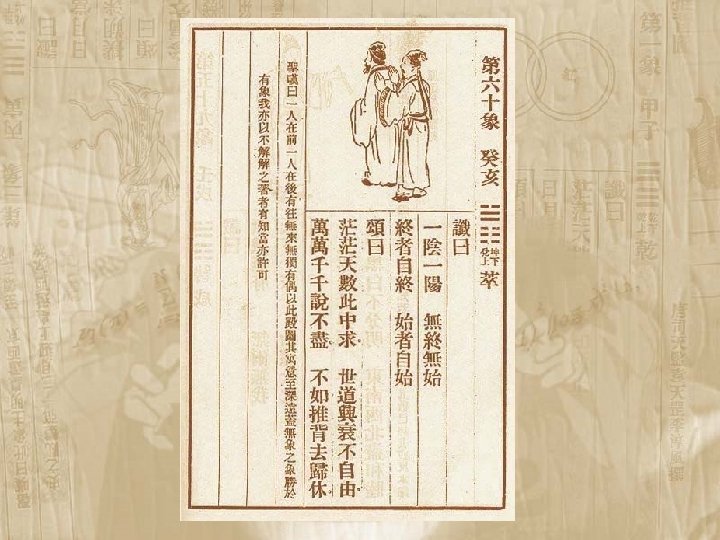 第六十象 癸亥 坤下兌上 萃
讖曰
一陰一陽 無終無始
終者自終 始者自始
頌曰
茫茫天數此中求 世道興衰不自由
萬萬千千說不盡 不如推背去歸休
聖嘆曰一人在前一人在後有往無來無獨有偶以此殿圖其寓意至深遠蓋無象之象勝於
有象我亦以不解解之著者有知當亦許可